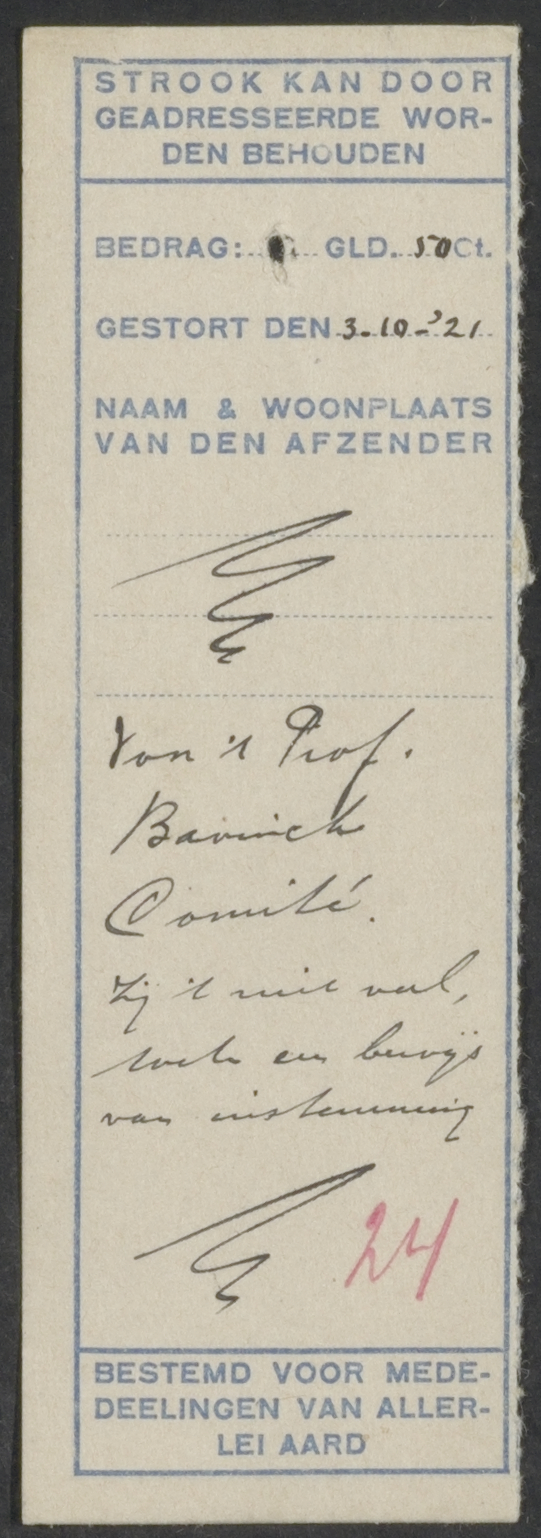 STROOK KAN DOOR
GEADRESSEERDE WOR-
DEN BEHOUDEN
BEDRAG: GLD. 50 Ct.
GESTORT DEN 3-10-'21
NAAM & WOONPLAATS
VAN DEN AFZENDER
Von 't Prof.
Bavinck
Comité.
Zij 't niet veel,
toch een bewijs
van instemming
24
BESTEMD VOOR MEDE-
DEELINGEN VAN ALLER-
LEI AARD